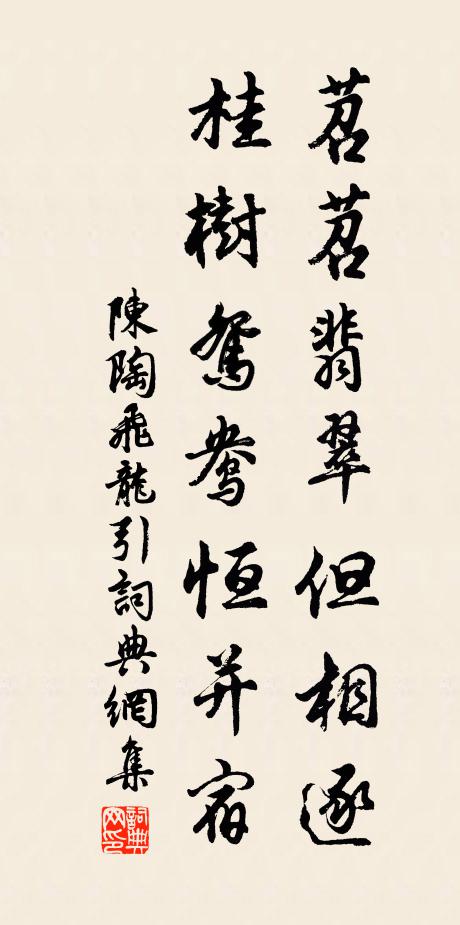 苕苕翡翠但相逐
桂樹鴛鴦恒并宿
陳陶飛龍引詞典網集
詞典网印